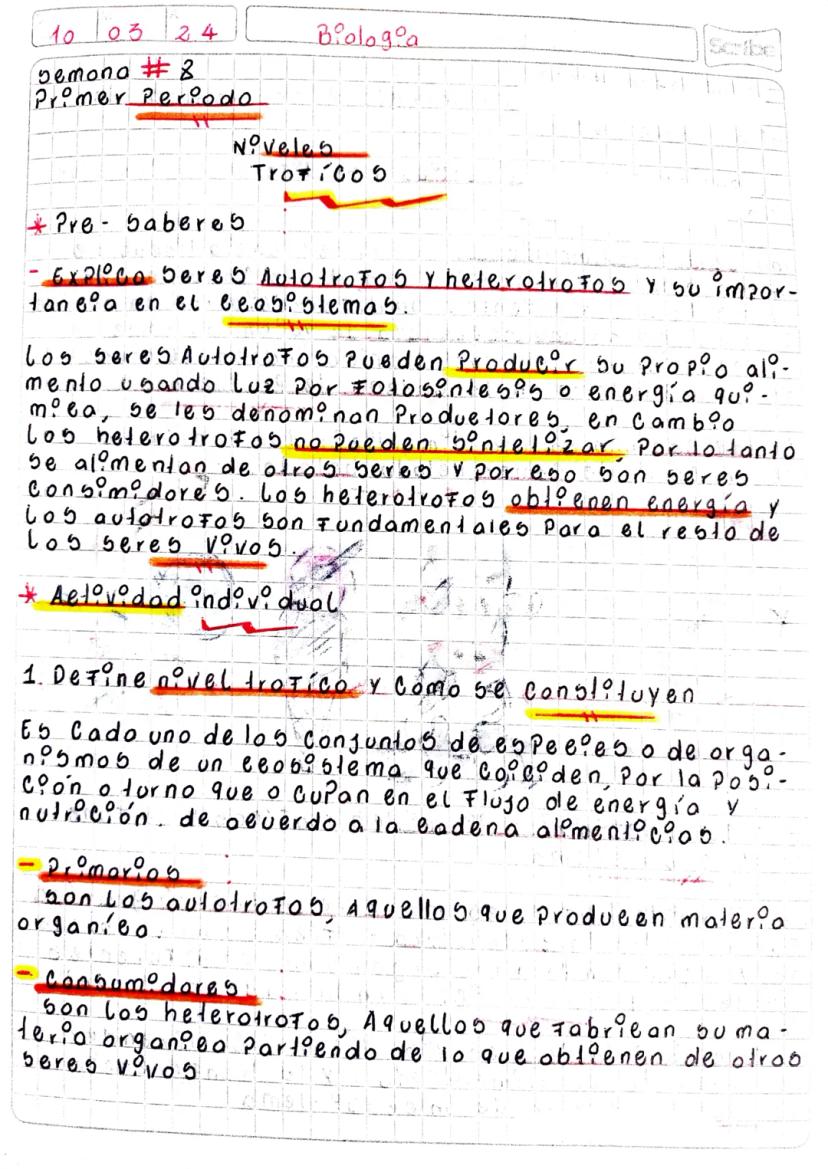 10 03 24 Biologia
Scribe
Semana # 8
Primer Periodo
Niveles
Troficos
* Pre-saberes
- Explica seres Autotrofos y heterotrofos y su impor-
tancia en el ecosistemas.
Los seres Autotrofos pueden producir su propio ali-
mento usando luz por fotosintesis o energía qui-
mica, se les denominan productores, en cambio
los heterotrofos no pueden sintetizar, por lo tanto
se alimentan de otros seres y por eso son seres
consimidores. Los heterotrofos obtienen energía y
los autótrofos son fundamentales para el resto de
los seres vivos.
* Actividad individual
1. Define nivel trofico y cómo se constituyen
Es cada uno de los conjuntos de especies o de orga-
nismos de un ecosistema que coiciden, por la posi-
ción o turno que ocupan en el flujo de energía y
nutrición. de acuerdo a la cadena alimenticias.
- Primarios
son los autotrofos, Aquellos que producen materia
organica.
- Consumidores
son los heterotrofos, Aquellos que fabrican su ma-
teria organica partiendo de lo que obtienen de otros
seres vivos